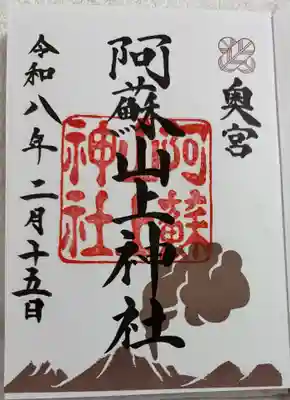 奥宮
阿蘇山上神社
令和八年二月十五日
阿蘇
神社